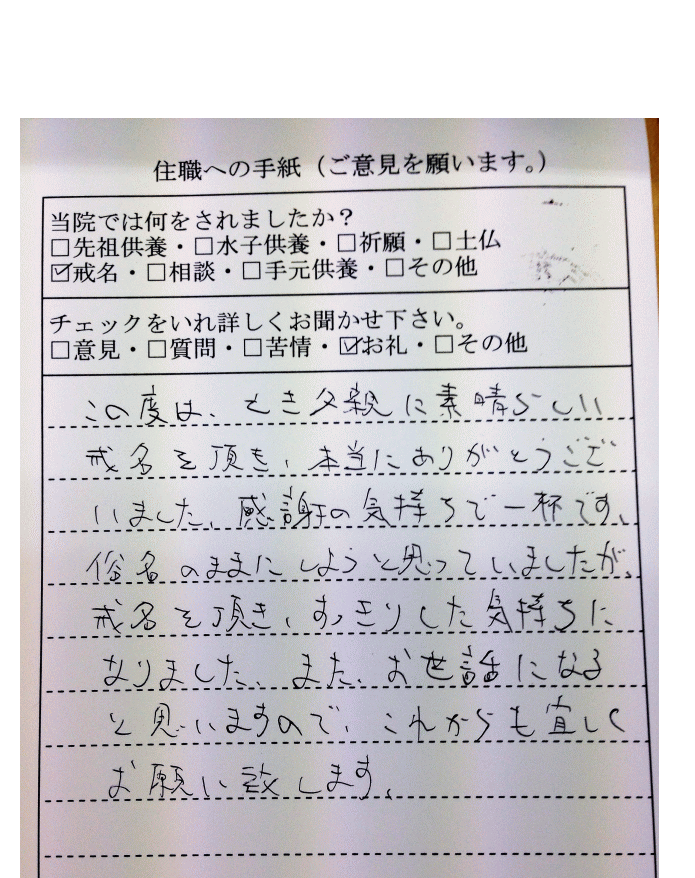 住職への手紙（ご意見を願います。）
当院では何をされましたか？
□先祖供養・□水子供養・□祈願・□土仏
☑戒名・□相談・□手元供養・□その他
チェックをいれ詳しくお聞かせ下さい。
□意見・□質問・□苦情・☑お礼・□その他
この度は、亡き父親に素晴らしい
戒名を頂き、本当にありがとうござ
いました、感謝の気持ちで一杯です、
俗名のままにしようと思っていましたが、
戒名を頂き、すっきりした気持ちに
なりました、また、お世話になる
と思いますので、これからも宜しく
お願い致します、